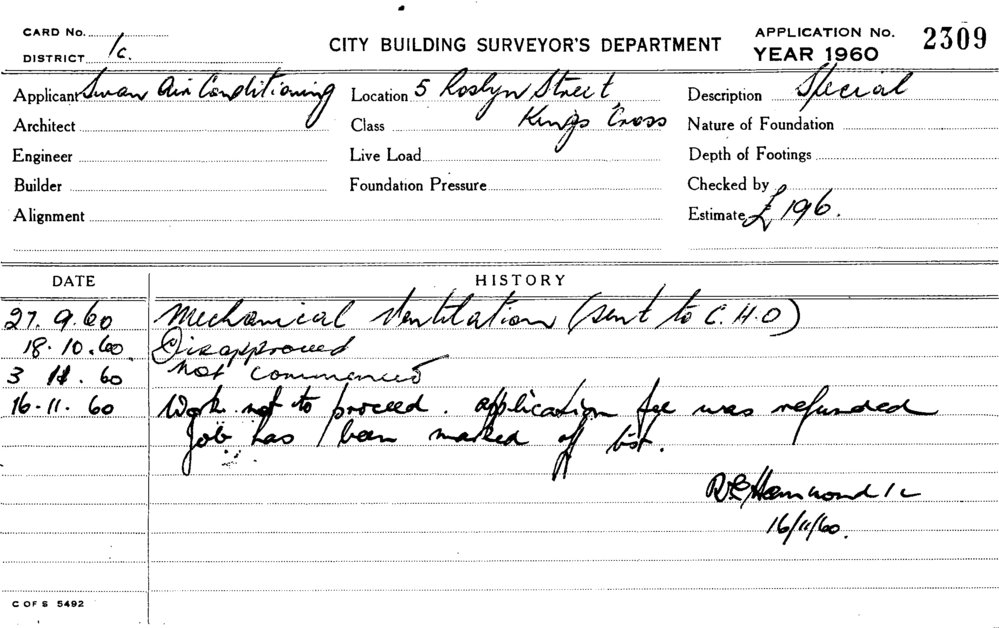 CARD No.
DISTRICT 1c.
CITY BUILDING SURVEYOR'S DEPARTMENT
APPLICATION No. 2309
YEAR 1960
Applicant Swan Air Conditioning Location 5 Roslyn Street Description Special
Architect Class Kings Cross Nature of Foundation
Engineer Live Load Depth of Footings
Builder Foundation Pressure Checked by
Alignment Estimate £196.
DATE HISTORY
27.9.60 Mechanical Ventilation (sent to C.H.O)
18.10.60. Disapproved
3 11.60 not commenced
16.11.60 Work not to proceed. application fee was refunded
Job has been marked of list.
R E Hammond 1c
16/11/60.
C OF S 5492